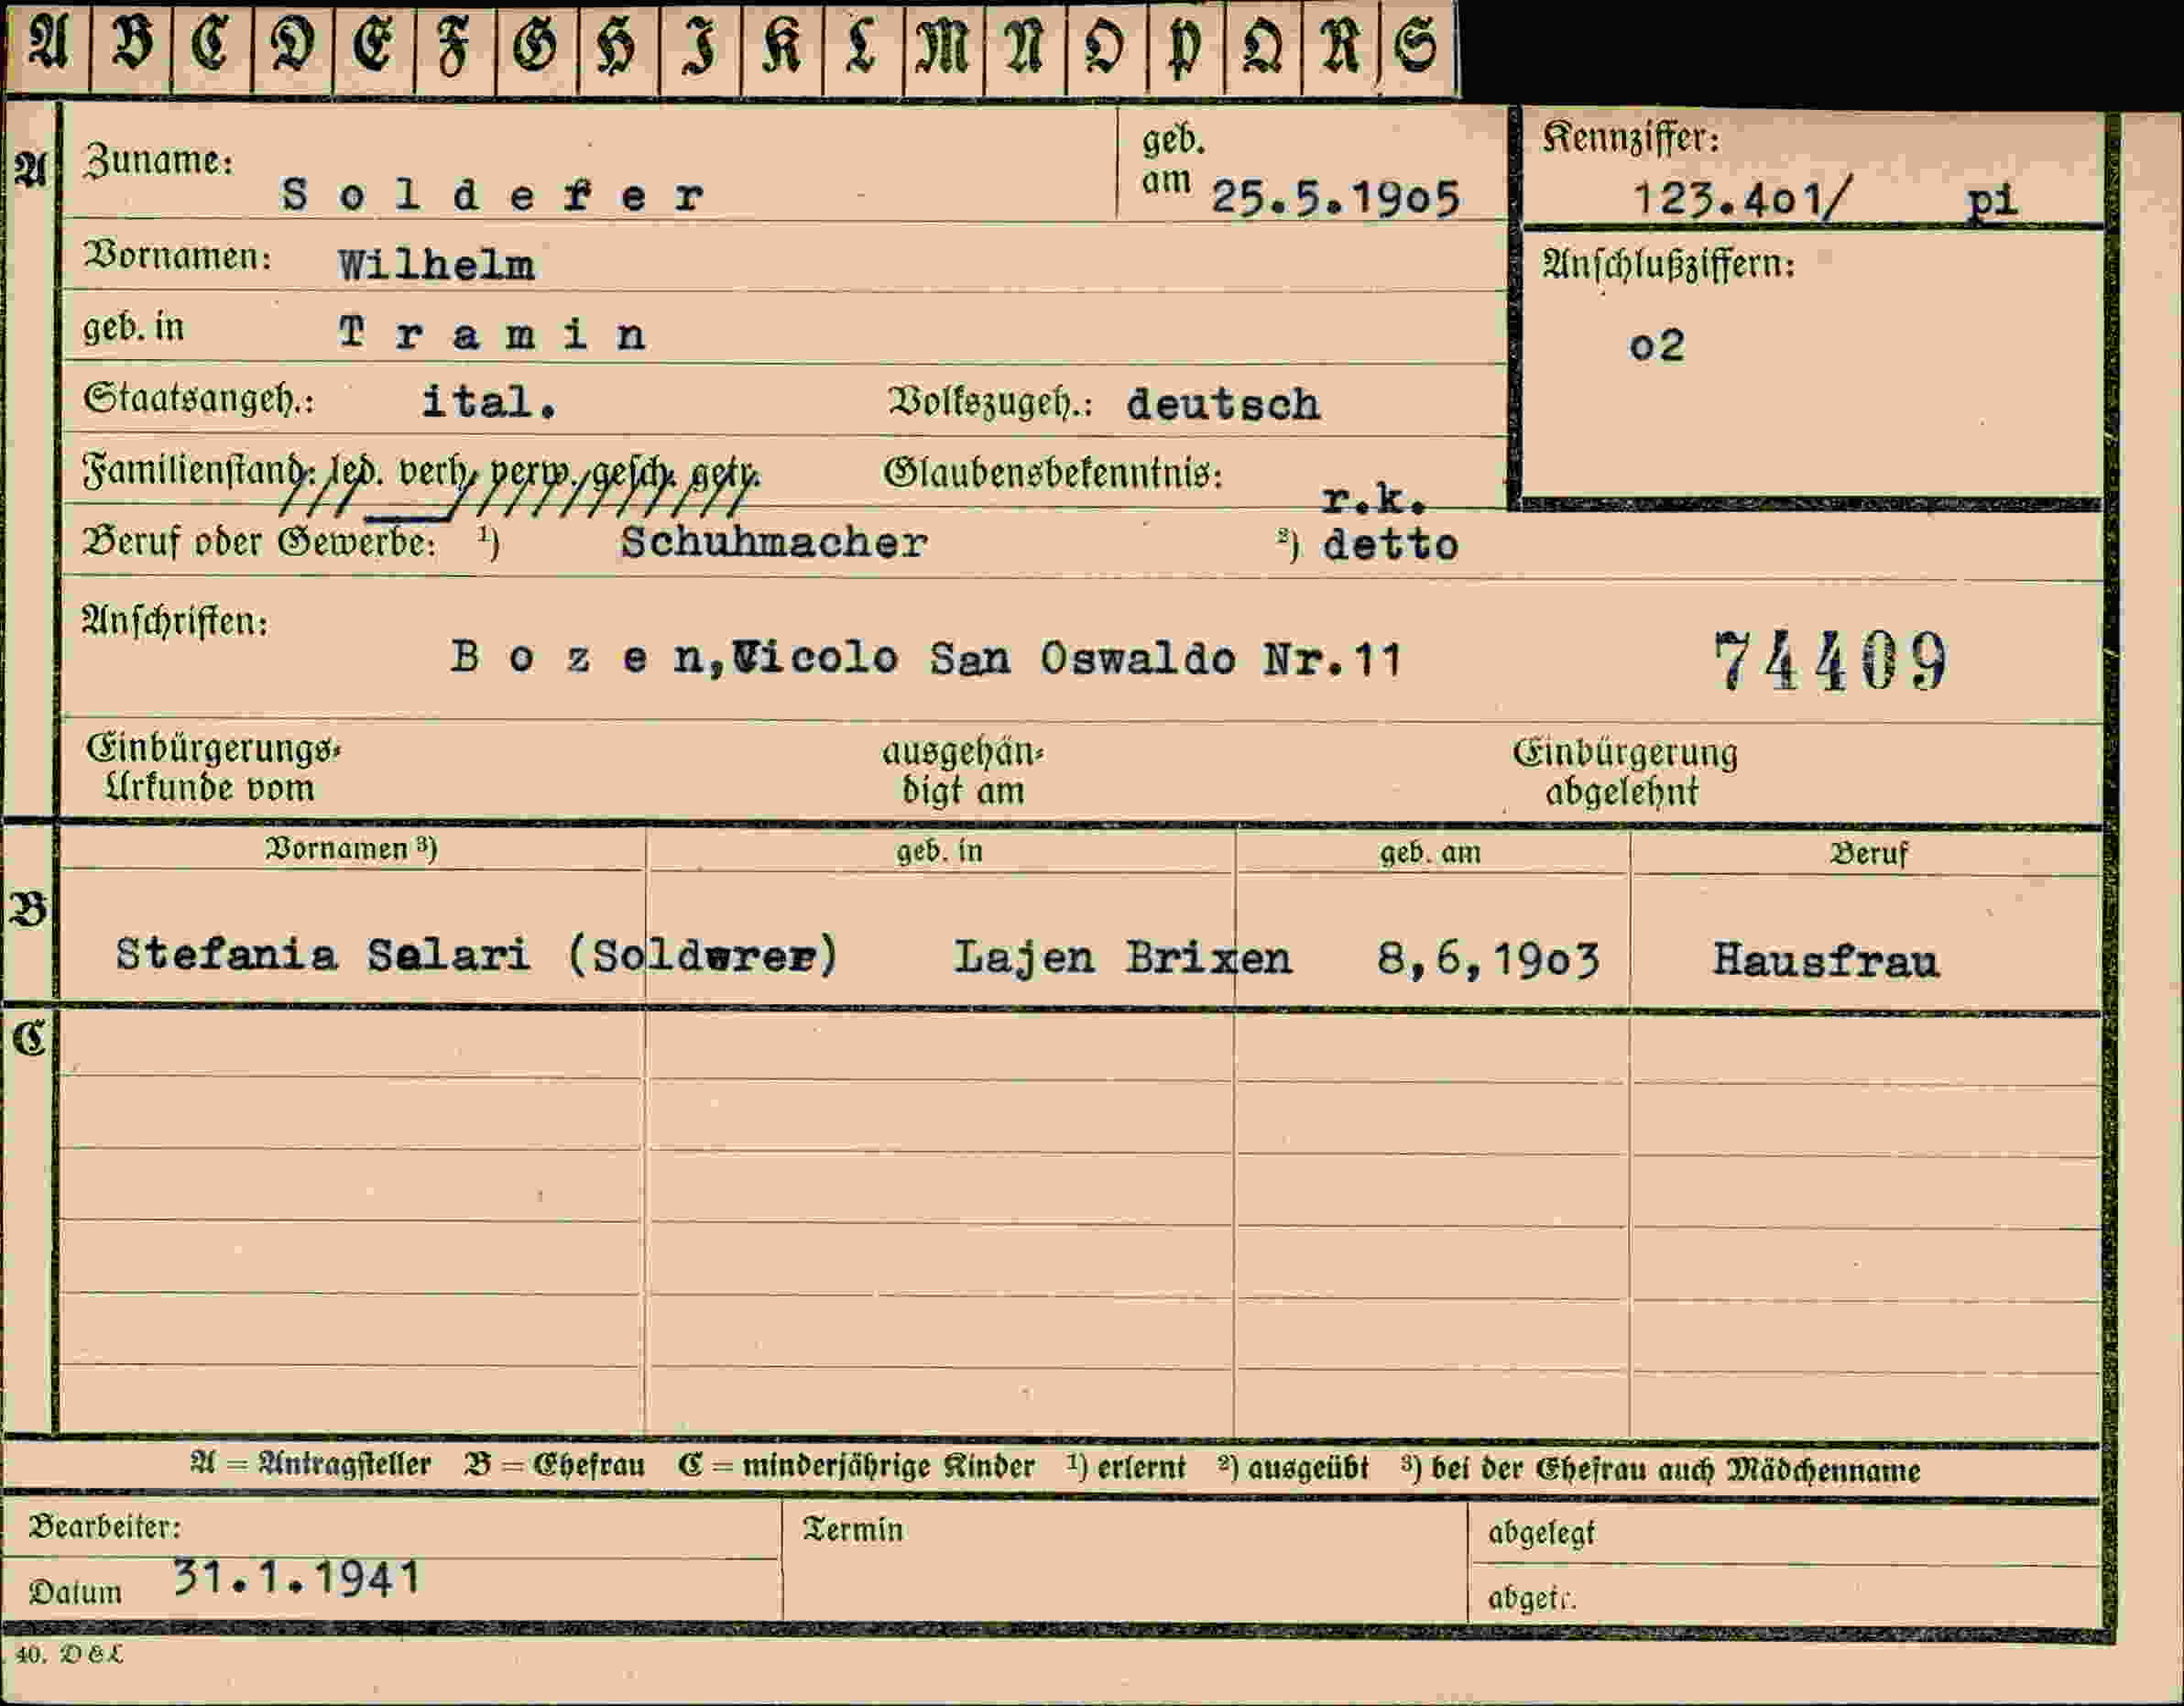 A B C D E F G H I K L M N O P Q R S
A
Zuname: Solderer
geb. am 25.5.19o5
Kennziffer:
123.4o1/ pi
Vornamen: Wilhelm
Anschlußziffern:
o2
geb. in Tramin
Staatsangeh.: ital. Volkszugeh.: deutsch
Familienstand: led. verh. verw. gesch. getr. Glaubensbekenntnis: r.k.
Beruf oder Gewerbe: ¹) Schuhmacher ²) detto
Anschriften:
Bozen,Vicolo San Oswaldo Nr.11 74409
Einbürgerungs-Urkunde vom ausgehändigt am Einbürgerung abgelehnt
B
Vornamen ³) geb. in geb. am Beruf
Stefania Salari (Solderer) Lajen Brixen 8,6,19o3 Hausfrau
C
A = Antragsteller B = Ehefrau C = minderjährige Kinder ¹) erlernt ²) ausgeübt ³) bei der Ehefrau auch Mädchenname
Bearbeiter: Termin abgelegt
Datum 31.1.1941 abgetr.
40. D&L